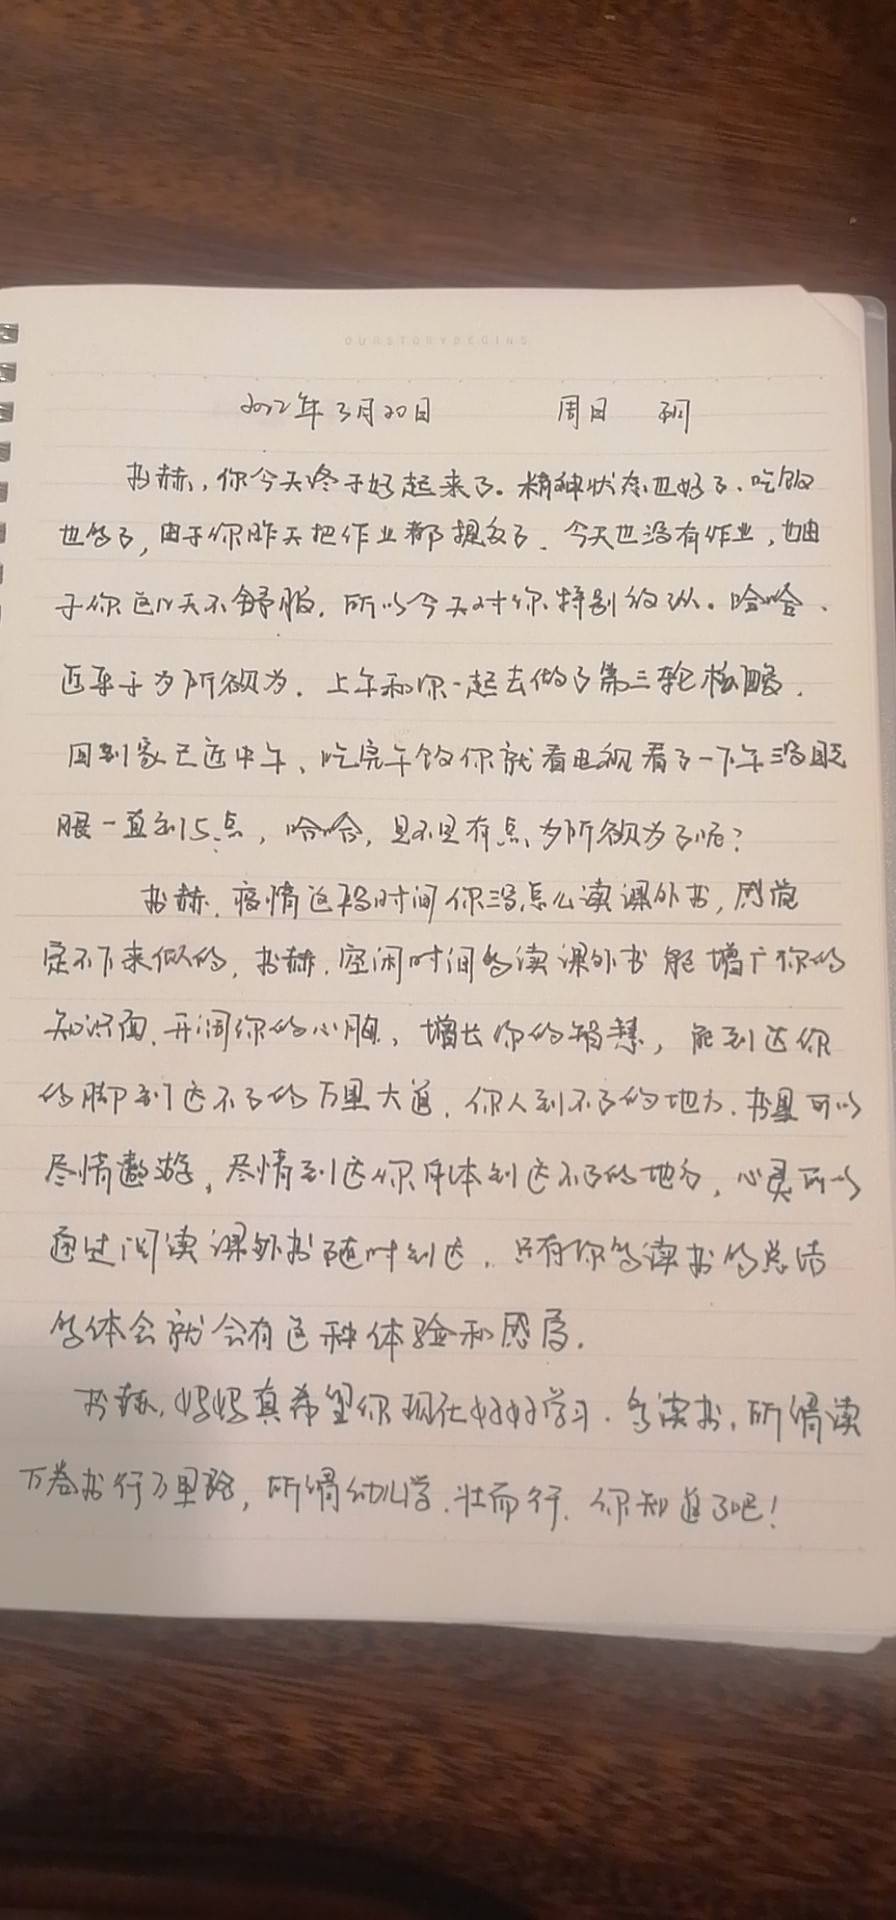 OURSTORYBEGINS
2022年3月20日 周日 阴
书赫，你今天终于好起来了。精神状态也好了、吃饭
也多了，由于你昨天把作业都提交了、今天也没有作业，也由
于你这几天不舒服，所以今天对你特别放纵。哈哈、
近乎于为所欲为。上午和你一起去做了第三轮核酸、
回到家已近中午、吃完午饭你就看电视看了一下午没眨
眼一直到15点，哈哈，是不是有点为所欲为了呢？
书赫，疫情这段时间你没怎么读课外书，感觉
定不下来似的，书赫，空闲时间多读课外书能增广你的
知识面、开阔你的心胸、增长你的智慧，能到达你
的脚到达不了的万里大道、你人到不了的地方、书里可以
尽情遨游，尽情到达你身体到达不了的地方，心灵可以
通过阅读课外书随时到达、只有你多读书多总结
多体会就会有这种体验和感虑。
书赫，妈妈真希望你现在好好学习、多读书，所谓读
万卷书行万里路，所谓幼儿学、壮而行、你知道了吧！